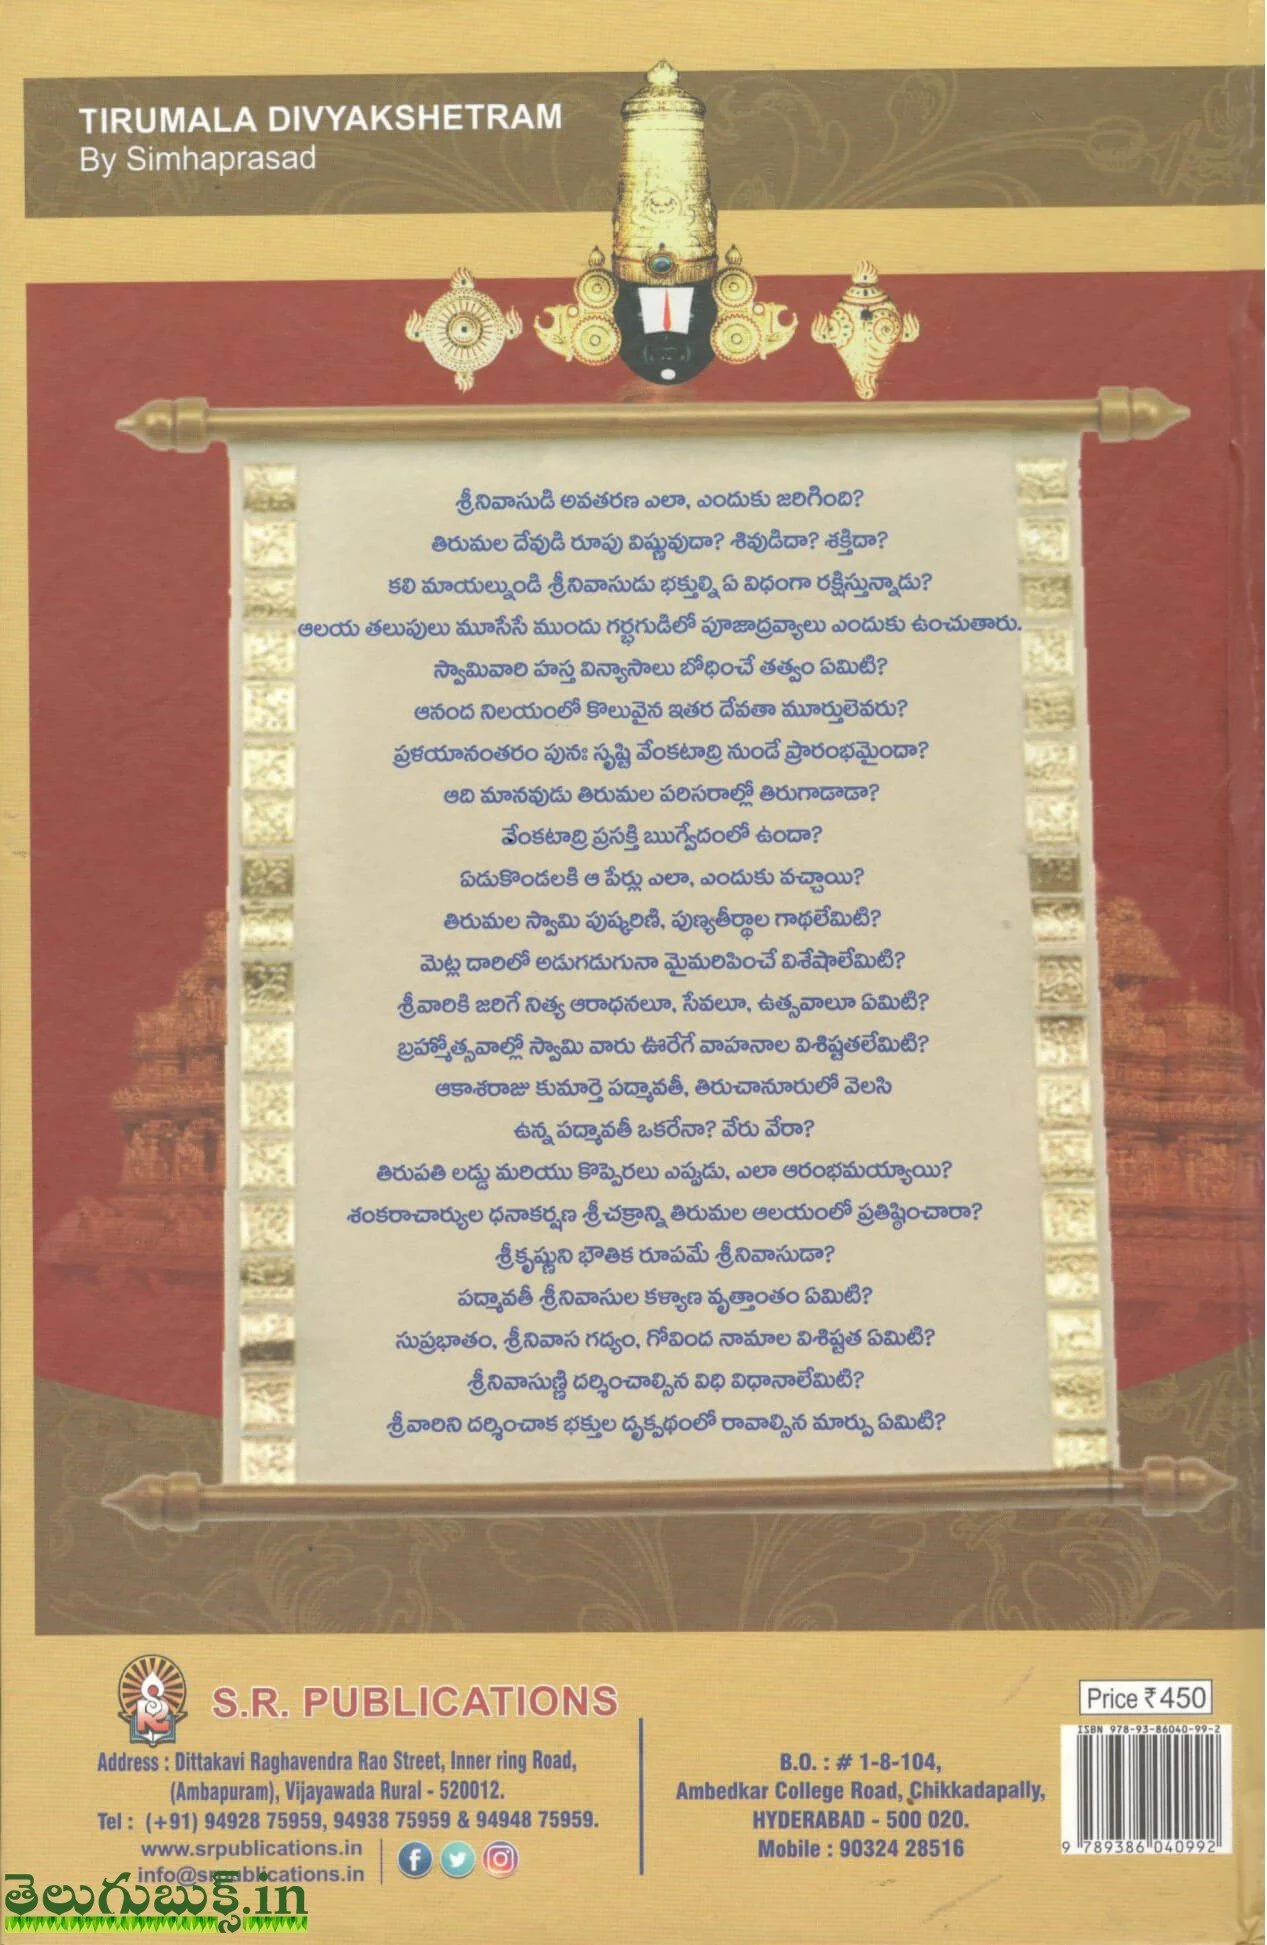 TIRUMALA DIVYAKSHETRAM
By Simhaprasad
శ్రీనివాసుడి అవతరణ ఎలా, ఎందుకు జరిగింది?
తిరుమల దేవుడి రూపు విష్ణువుదా? శివుడిదా? శక్తిదా?
కలి మాయల్నుండి శ్రీనివాసుడు భక్తుల్ని ఏ విధంగా రక్షిస్తున్నాడు?
ఆలయ తలుపులు మూసేసే ముందు గర్భగుడిలో పూజాద్రవ్యాలు ఎందుకు ఉంచుతారు.
స్వామివారి హస్త విన్యాసాలు బోధించే తత్వం ఏమిటి?
ఆనంద నిలయంలో కొలువైన ఇతర దేవతా మూర్తులెవరు?
ప్రళయానంతరం పునః సృష్టి వేంకటాద్రి నుండే ప్రారంభమైందా?
ఆది మానవుడు తిరుమల పరిసరాల్లో తిరుగాడాడా?
వేంకటాద్రి ప్రసక్తి ఋగ్వేదంలో ఉందా?
ఏడుకొండలకి ఆ పేర్లు ఎలా, ఎందుకు వచ్చాయి?
తిరుమల స్వామి పుష్కరిణి, పుణ్యతీర్థాల గాథలేమిటి?
మెట్ల దారిలో అడుగడుగునా మైమరిపించే విశేషాలేమిటి?
శ్రీవారికి జరిగే నిత్య ఆరాధనలూ, సేవలూ, ఉత్సవాలూ ఏమిటి?
బ్రహ్మోత్సవాల్లో స్వామి వారు ఊరేగే వాహనాల విశిష్టతలేమిటి?
ఆకాశరాజు కుమార్తె పద్మావతీ, తిరుచానూరులో వెలసి
ఉన్న పద్మావతీ ఒకరేనా? వేరు వేరా?
తిరుపతి లడ్డు మరియు కొప్పెరలు ఎప్పుడు, ఎలా ఆరంభమయ్యాయి?
శంకరాచార్యుల ధనాకర్షణ శ్రీచక్రాన్ని తిరుమల ఆలయంలో ప్రతిష్ఠించారా?
శ్రీకృష్ణుని భౌతిక రూపమే శ్రీనివాసుడా?
పద్మావతీ శ్రీనివాసుల కళ్యాణ వృత్తాంతం ఏమిటి?
సుప్రభాతం, శ్రీనివాస గద్యం, గోవింద నామాల విశిష్టత ఏమిటి?
శ్రీనివాసుణ్ణి దర్శించాల్సిన విధి విధానాలేమిటి?
శ్రీవారిని దర్శించాక భక్తుల దృక్పథంలో రావాల్సిన మార్పు ఏమిటి?
S.R. PUBLICATIONS
Address : Dittakavi Raghavendra Rao Street, Inner ring Road,
(Ambapuram), Vijayawada Rural - 520012.
Tel : (+91) 94928 75959, 94938 75959 & 94948 75959.
www.srpublications.in
info@srpublications.in
B.O. : # 1-8-104,
Ambedkar College Road, Chikkadapally,
HYDERABAD - 500 020.
Mobile : 90324 28516
Price ₹ 450
ISBN 978-93-86040-99-2
9 789386 040992
తెలుగుబుక్స్.in